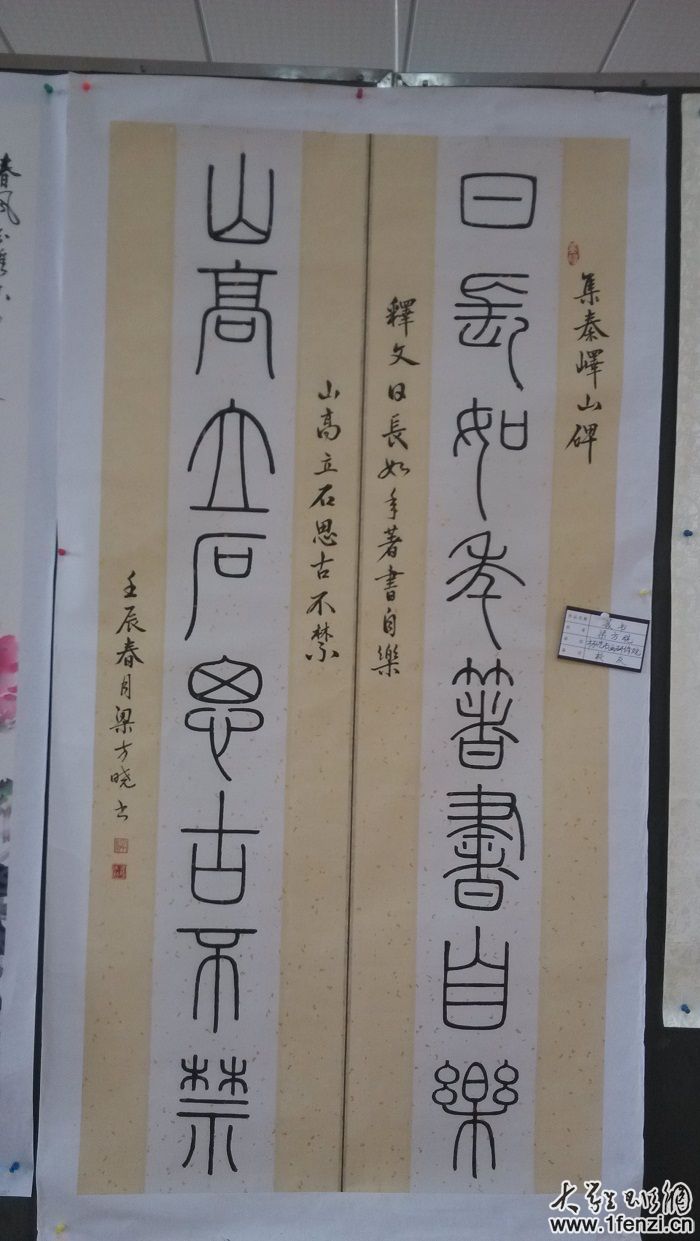 集秦嶧山碑
日長如年著書自樂
釋文日長如年著書自樂
山高立石思古不禁
山高立石思古不禁
壬辰春月梁方曉书
春风
篆书
梁方晓
大学生书法网
www.1fenzi.cn